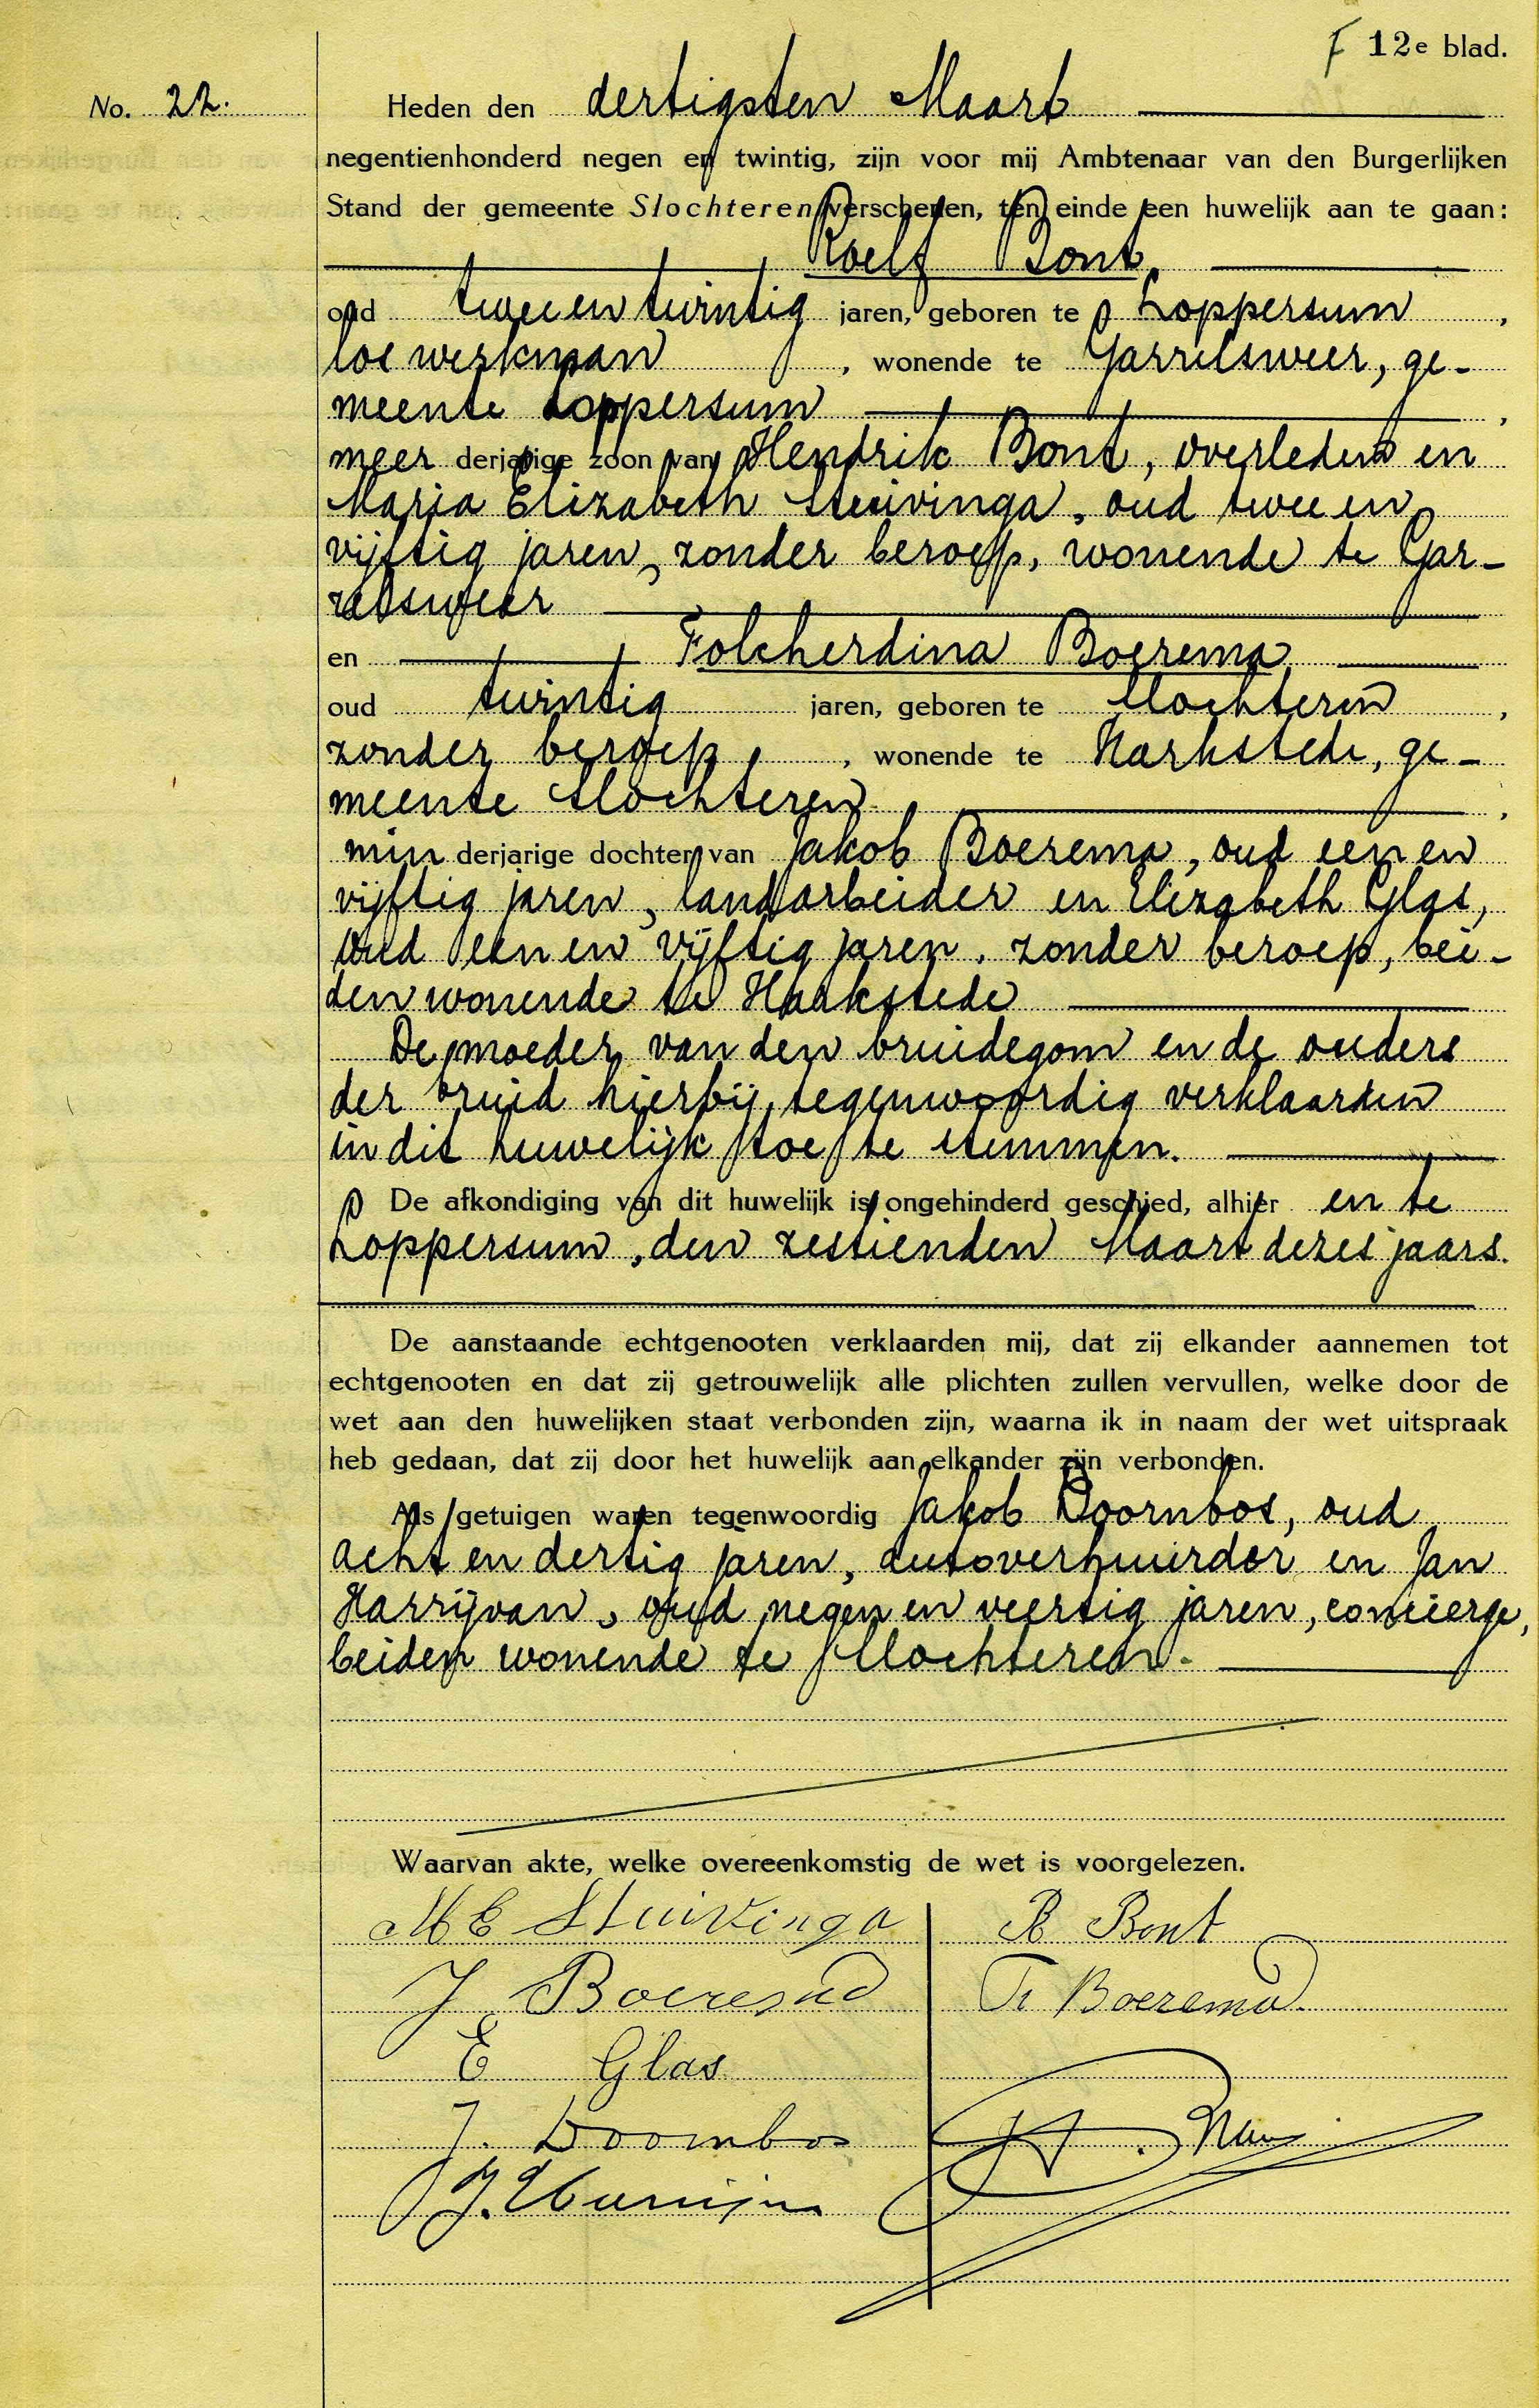 F 12e blad.
No. 22.
Heden den dertigsten Maart
negentienhonderd negen en twintig, zijn voor mij Ambtenaar van den Burgerlijken
Stand der gemeente Slochteren verschenen, ten einde een huwelijk aan te gaan:
Roelf Bont,
oud twee en twintig jaren, geboren te Loppersum,
los werkman, wonende te Garrelsweer, ge-
meente Loppersum,
meerderjarige zoon van Hendrik Bont, overleden en
Maria Elizabeth Stuivinga, oud twee en
vijftig jaren, zonder beroep, wonende te Gar-
relsweer
en Folcherdina Boerema,
oud twintig jaren, geboren te Slochteren,
zonder beroep, wonende te Harkstede, ge-
meente Slochteren,
minderjarige dochter van Jakob Boerema, oud een en
vijftig jaren, landarbeider en Elizabeth Glas,
oud een en vijftig jaren, zonder beroep, bei-
den wonende te Harkstede
De moeder van den bruidegom en de ouders
der bruid hierbij tegenwoordig verklaarden
in dit huwelijk toe te stemmen.
De afkondiging van dit huwelijk is ongehinderd geschied, alhier en te
Loppersum, den zestienden Maart dezes jaars.
De aanstaande echtgenooten verklaarden mij, dat zij elkander aannemen tot
echtgenooten en dat zij getrouwelijk alle plichten zullen vervullen, welke door de
wet aan den huwelijken staat verbonden zijn, waarna ik in naam der wet uitspraak
heb gedaan, dat zij door het huwelijk aan elkander zijn verbonden.
Als getuigen waren tegenwoordig Jakob Doornbos, oud
acht en dertig jaren, autoverhuurder en Jan
Harrijvan, oud negen en veertig jaren, concierge,
beiden wonende te Slochteren.
Waarvan akte, welke overeenkomstig de wet is voorgelezen.
M E Stuivinga R Bont
J Boerema F Boerema
E Glas
J. Doornbos
J. Harrijvan